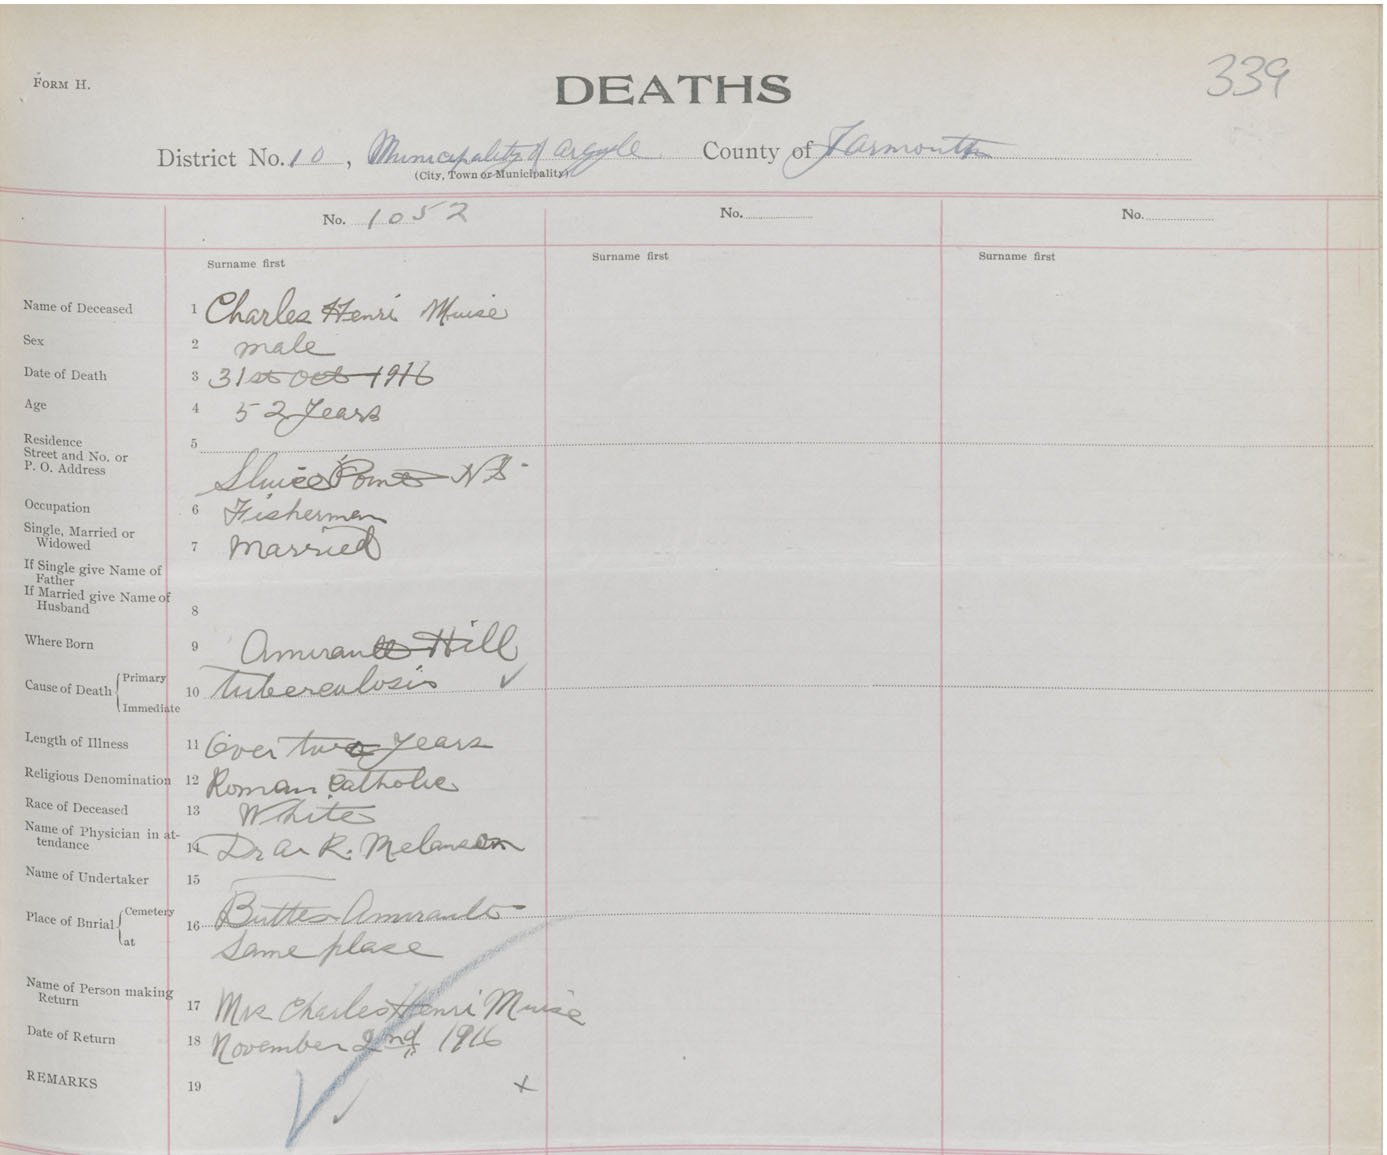 FORM H.
DEATHS
339
District No. 10, Municipality of Argyle County of Yarmouth
(City, Town or Municipality)
No. 1052 No. No.
Surname first Surname first Surname first
Name of Deceased 1 Charles Henri Muise
Sex 2 male
Date of Death 3 31st Oct 1916
Age 4 52 Years
Residence 5
Street and No. or
P. O. Address
Sluice Point N S
Occupation 6 Fishermen
Single, Married or
Widowed 7 Married
If Single give Name of
Father
If Married give Name of
Husband 8
Where Born 9 Amirault Hill
Cause of Death Primary 10 Tuberculosis ✓
Immediate
Length of Illness 11 Over two Years
Religious Denomination 12 Roman Catholic
Race of Deceased 13 White
Name of Physician in at-
tendance 14 Dr A R. Melanson
Name of Undertaker 15
Place of Burial Cemetery 16 Buttes Amirault
at same place
Name of Person making
Return 17 Mrs Charles Henri Muise
Date of Return 18 November 2nd 1916
REMARKS 19 x